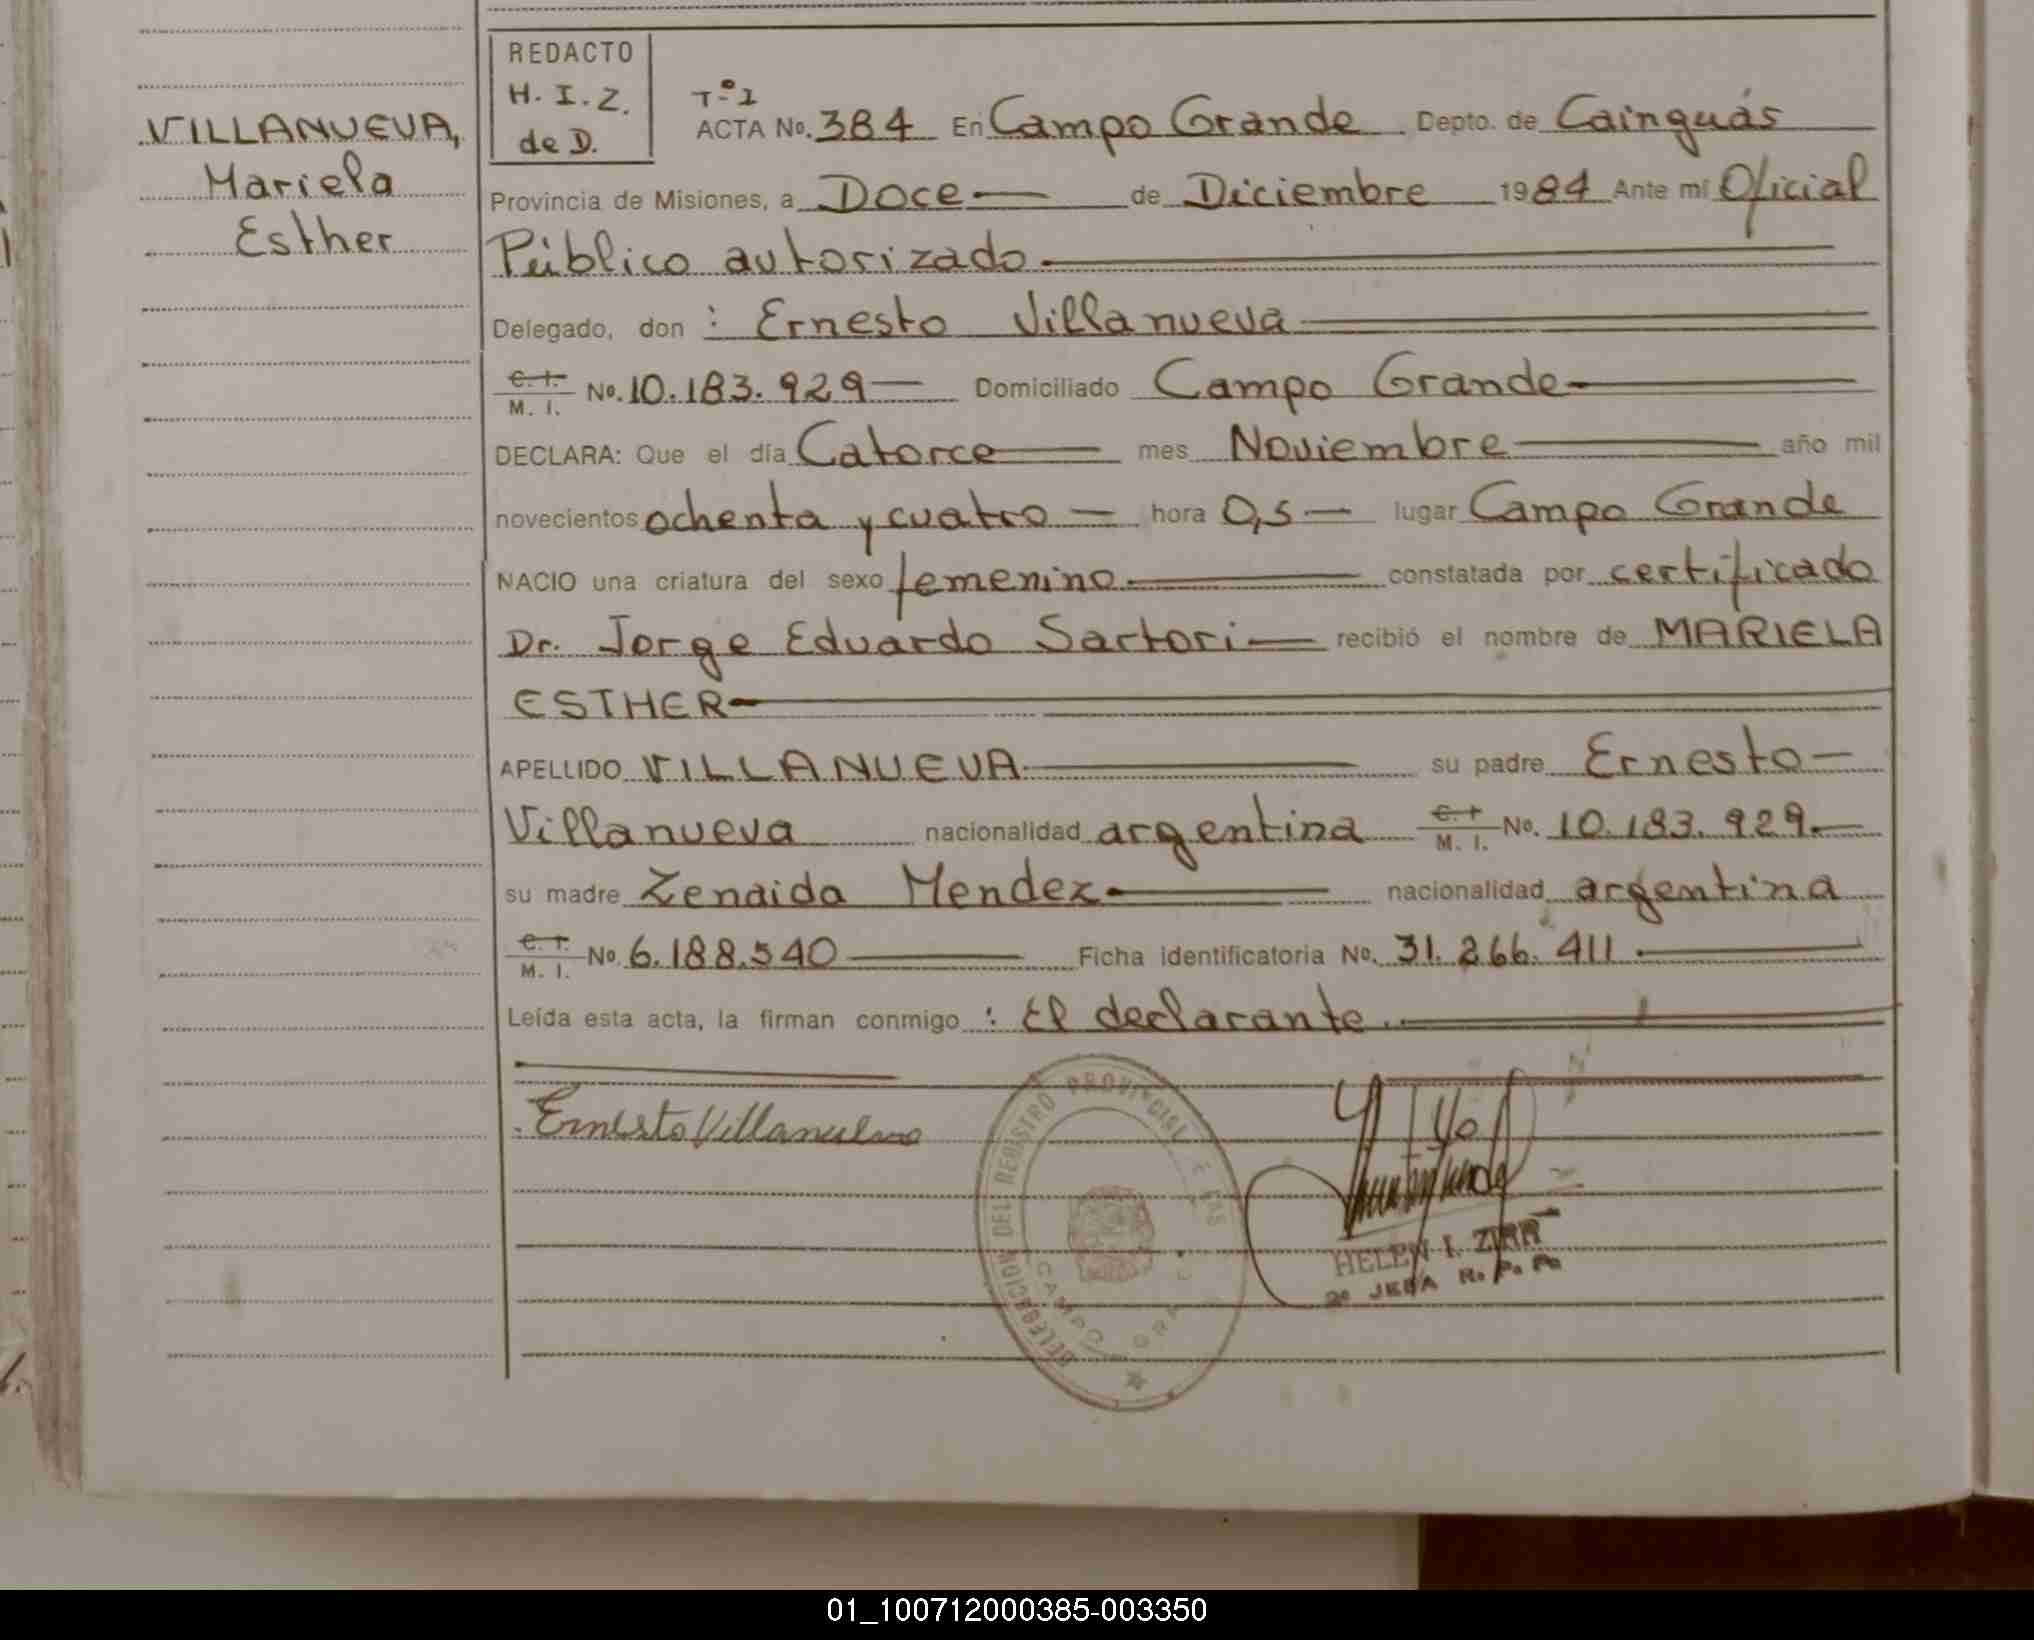 REDACTO
H. I. Z.
de D.
VILLANUEVA,
Mariela
Esther
Tº 2
ACTA No. 384 En Campo Grande Depto. de Cainguás
Provincia de Misiones, a Doce de Diciembre 1984 Ante mí Oficial
Público autorizado.
Delegado, don : Ernesto Villanueva
C. I. M. I. No. 10.183.929 Domiciliado Campo Grande
DECLARA: Que el día Catorce mes Noviembre año mil
novecientos ochenta y cuatro hora 0,5 lugar Campo Grande
NACIO una criatura del sexo femenino constatada por certificado
Dr. Jorge Eduardo Sartori recibió el nombre de MARIELA
ESTHER
APELLIDO VILLANUEVA su padre Ernesto
Villanueva nacionalidad argentina C. I. M. I. No. 10.183.929.
su madre Zenaida Mendez nacionalidad argentina
C. I. M. I. No. 6.188.540 Ficha identificatoria No. 31.266.411.
Leída esta acta, la firman conmigo : El declarante.
Ernesto Villanueva
DELEGACION DEL REGISTRO PROVINCIAL
CAMPO
HELEN I. ZIRR
2º JEFA R. P. P.
01_100712000385-003350